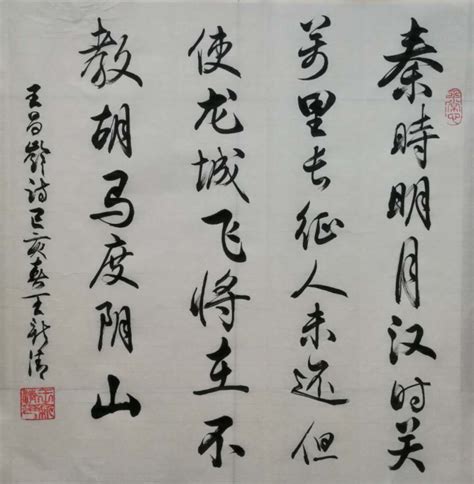 秦時明月汉时关
萬里长征人未还但
使龙城飞將在不
教胡马度阴山
王昌齡诗己亥春王新清